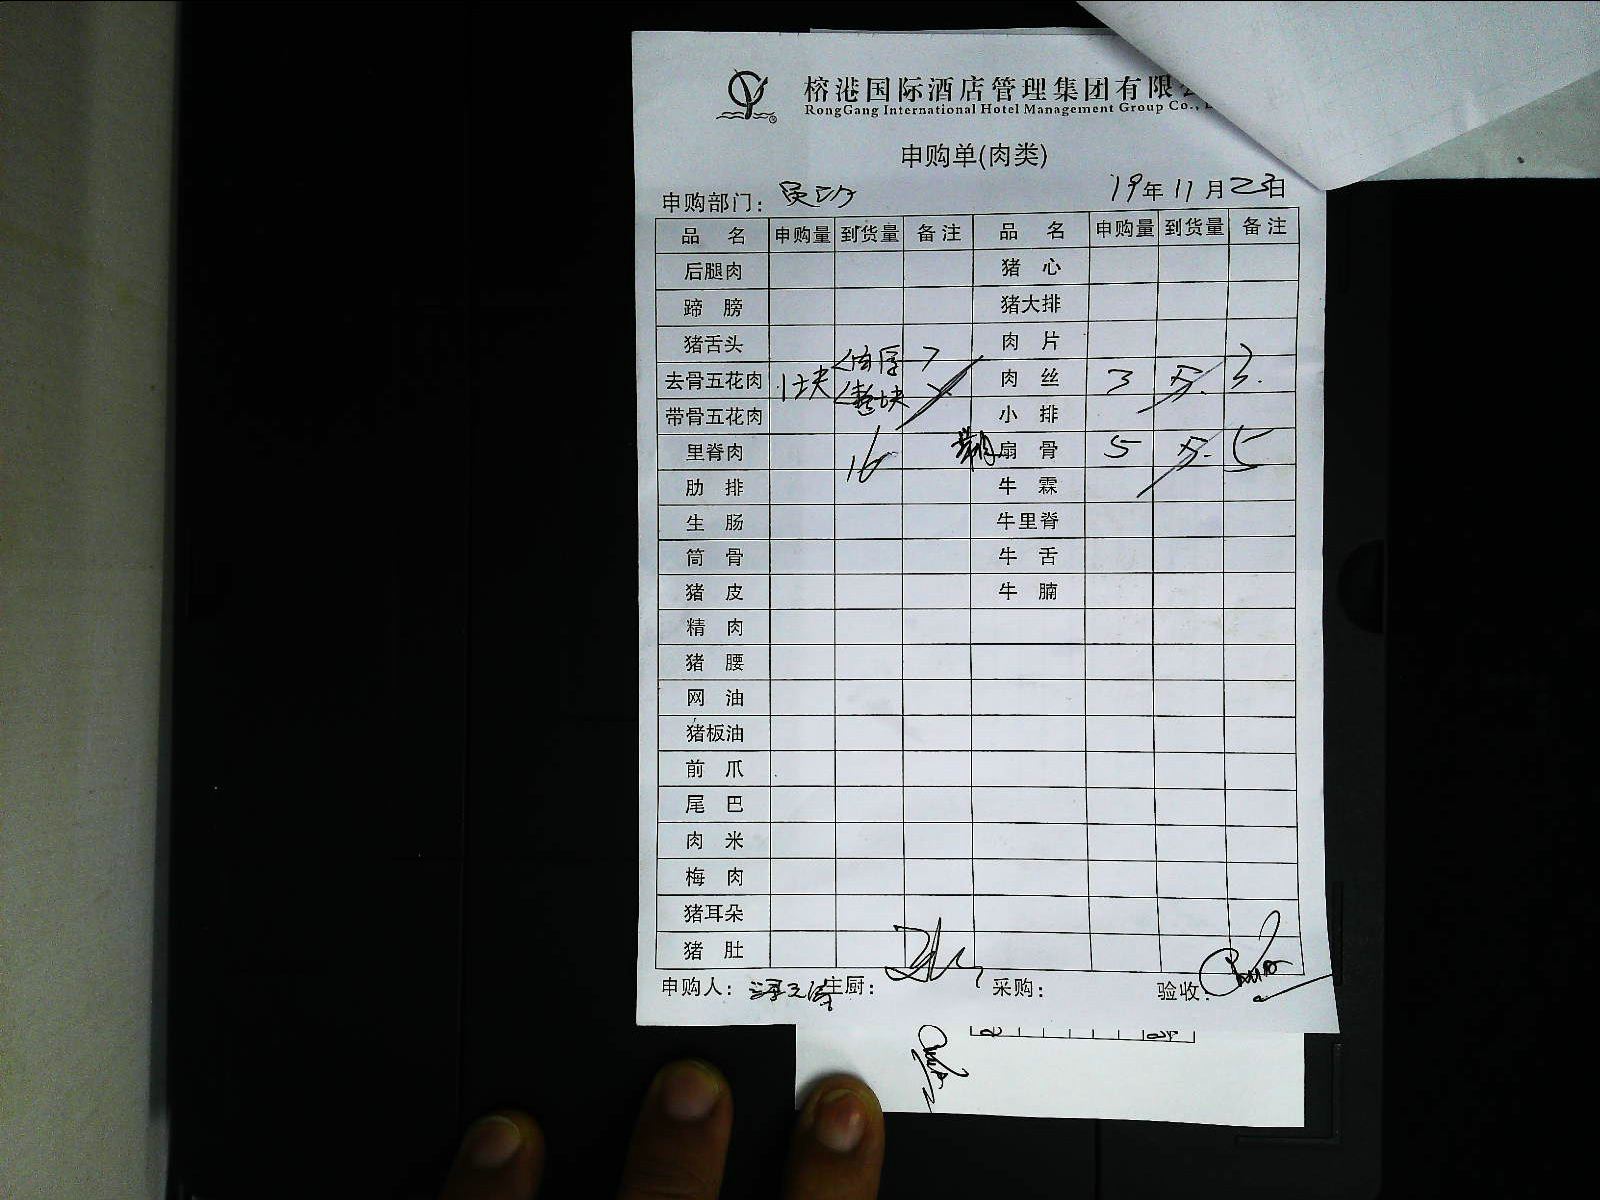 榕港国际酒店管理集团有限
RongGang International Hotel Management Group Co.,
申购单(肉类)
申购部门： 19年11月23日
品 名 申购量 到货量 备注 品 名 申购量 到货量 备注
后腿肉 猪 心
蹄 膀 猪大排
猪舌头 肉 片
<肉厚>
去骨五花肉 1块 <整块> 肉 丝 3 斤. 3.
带骨五花肉 小 排
里脊肉 16 扇 骨 5 斤. 5
肋 排 牛 霖
生 肠 牛里脊
筒 骨 牛 舌
猪 皮 牛 腩
精 肉
猪 腰
网 油
猪板油
前 爪
尾 巴
肉 米
梅 肉
猪耳朵
猪 肚
申购人： 主厨： 采购： 验收：